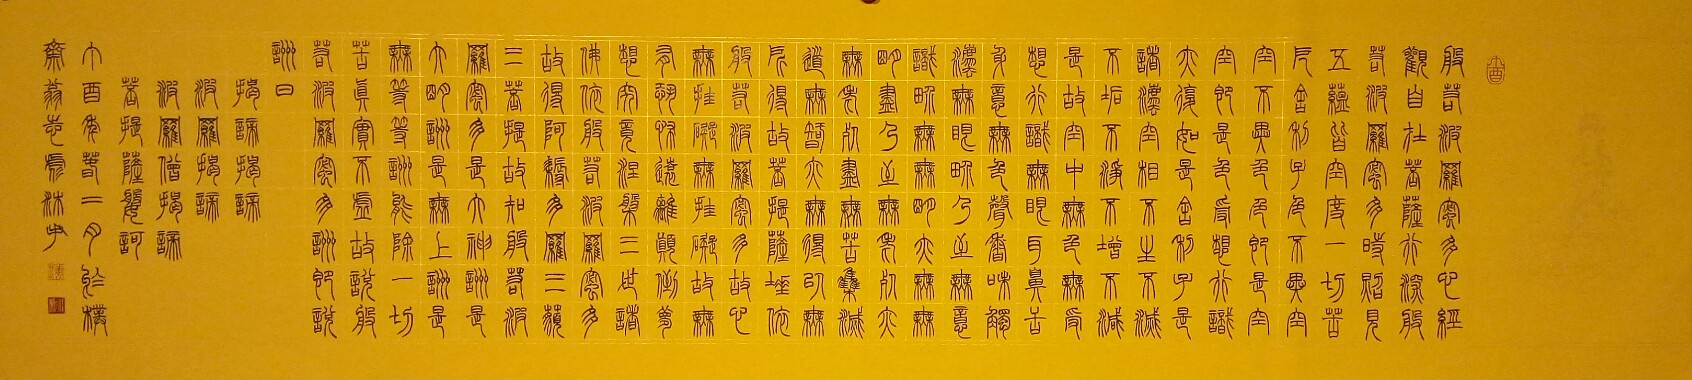 丁酉
般若波羅蜜多心經
觀自在菩薩行深般
若波羅蜜多時照見
五蘊皆空度一切苦
厄舍利子色不異空
空不異色色即是空
空即是色受想行識
亦復如是舍利子是
諸法空相不生不滅
不垢不淨不增不減
是故空中無色無受
想行識無眼耳鼻舌
身意無色聲香味觸
法無眼界乃至無意
識界無無明亦無無
明盡乃至無老死亦
無老死盡無苦集滅
道無智亦無得以無
所得故菩提薩埵依
般若波羅蜜多故心
無罣礙無罣礙故無
有恐怖遠離顛倒夢
想究竟涅槃三世諸
佛依般若波羅蜜多
故得阿耨多羅三藐
三菩提故知般若波
羅蜜多是大神詶是
大明詶是無上詶是
無等等詶能除一切
苦真實不虛故說般
若波羅蜜多詶即說
詶曰
揭諦揭諦
波羅揭諦
波羅僧揭諦
菩提薩婆訶
丁酉年春二月於樸
齋翁志沐手